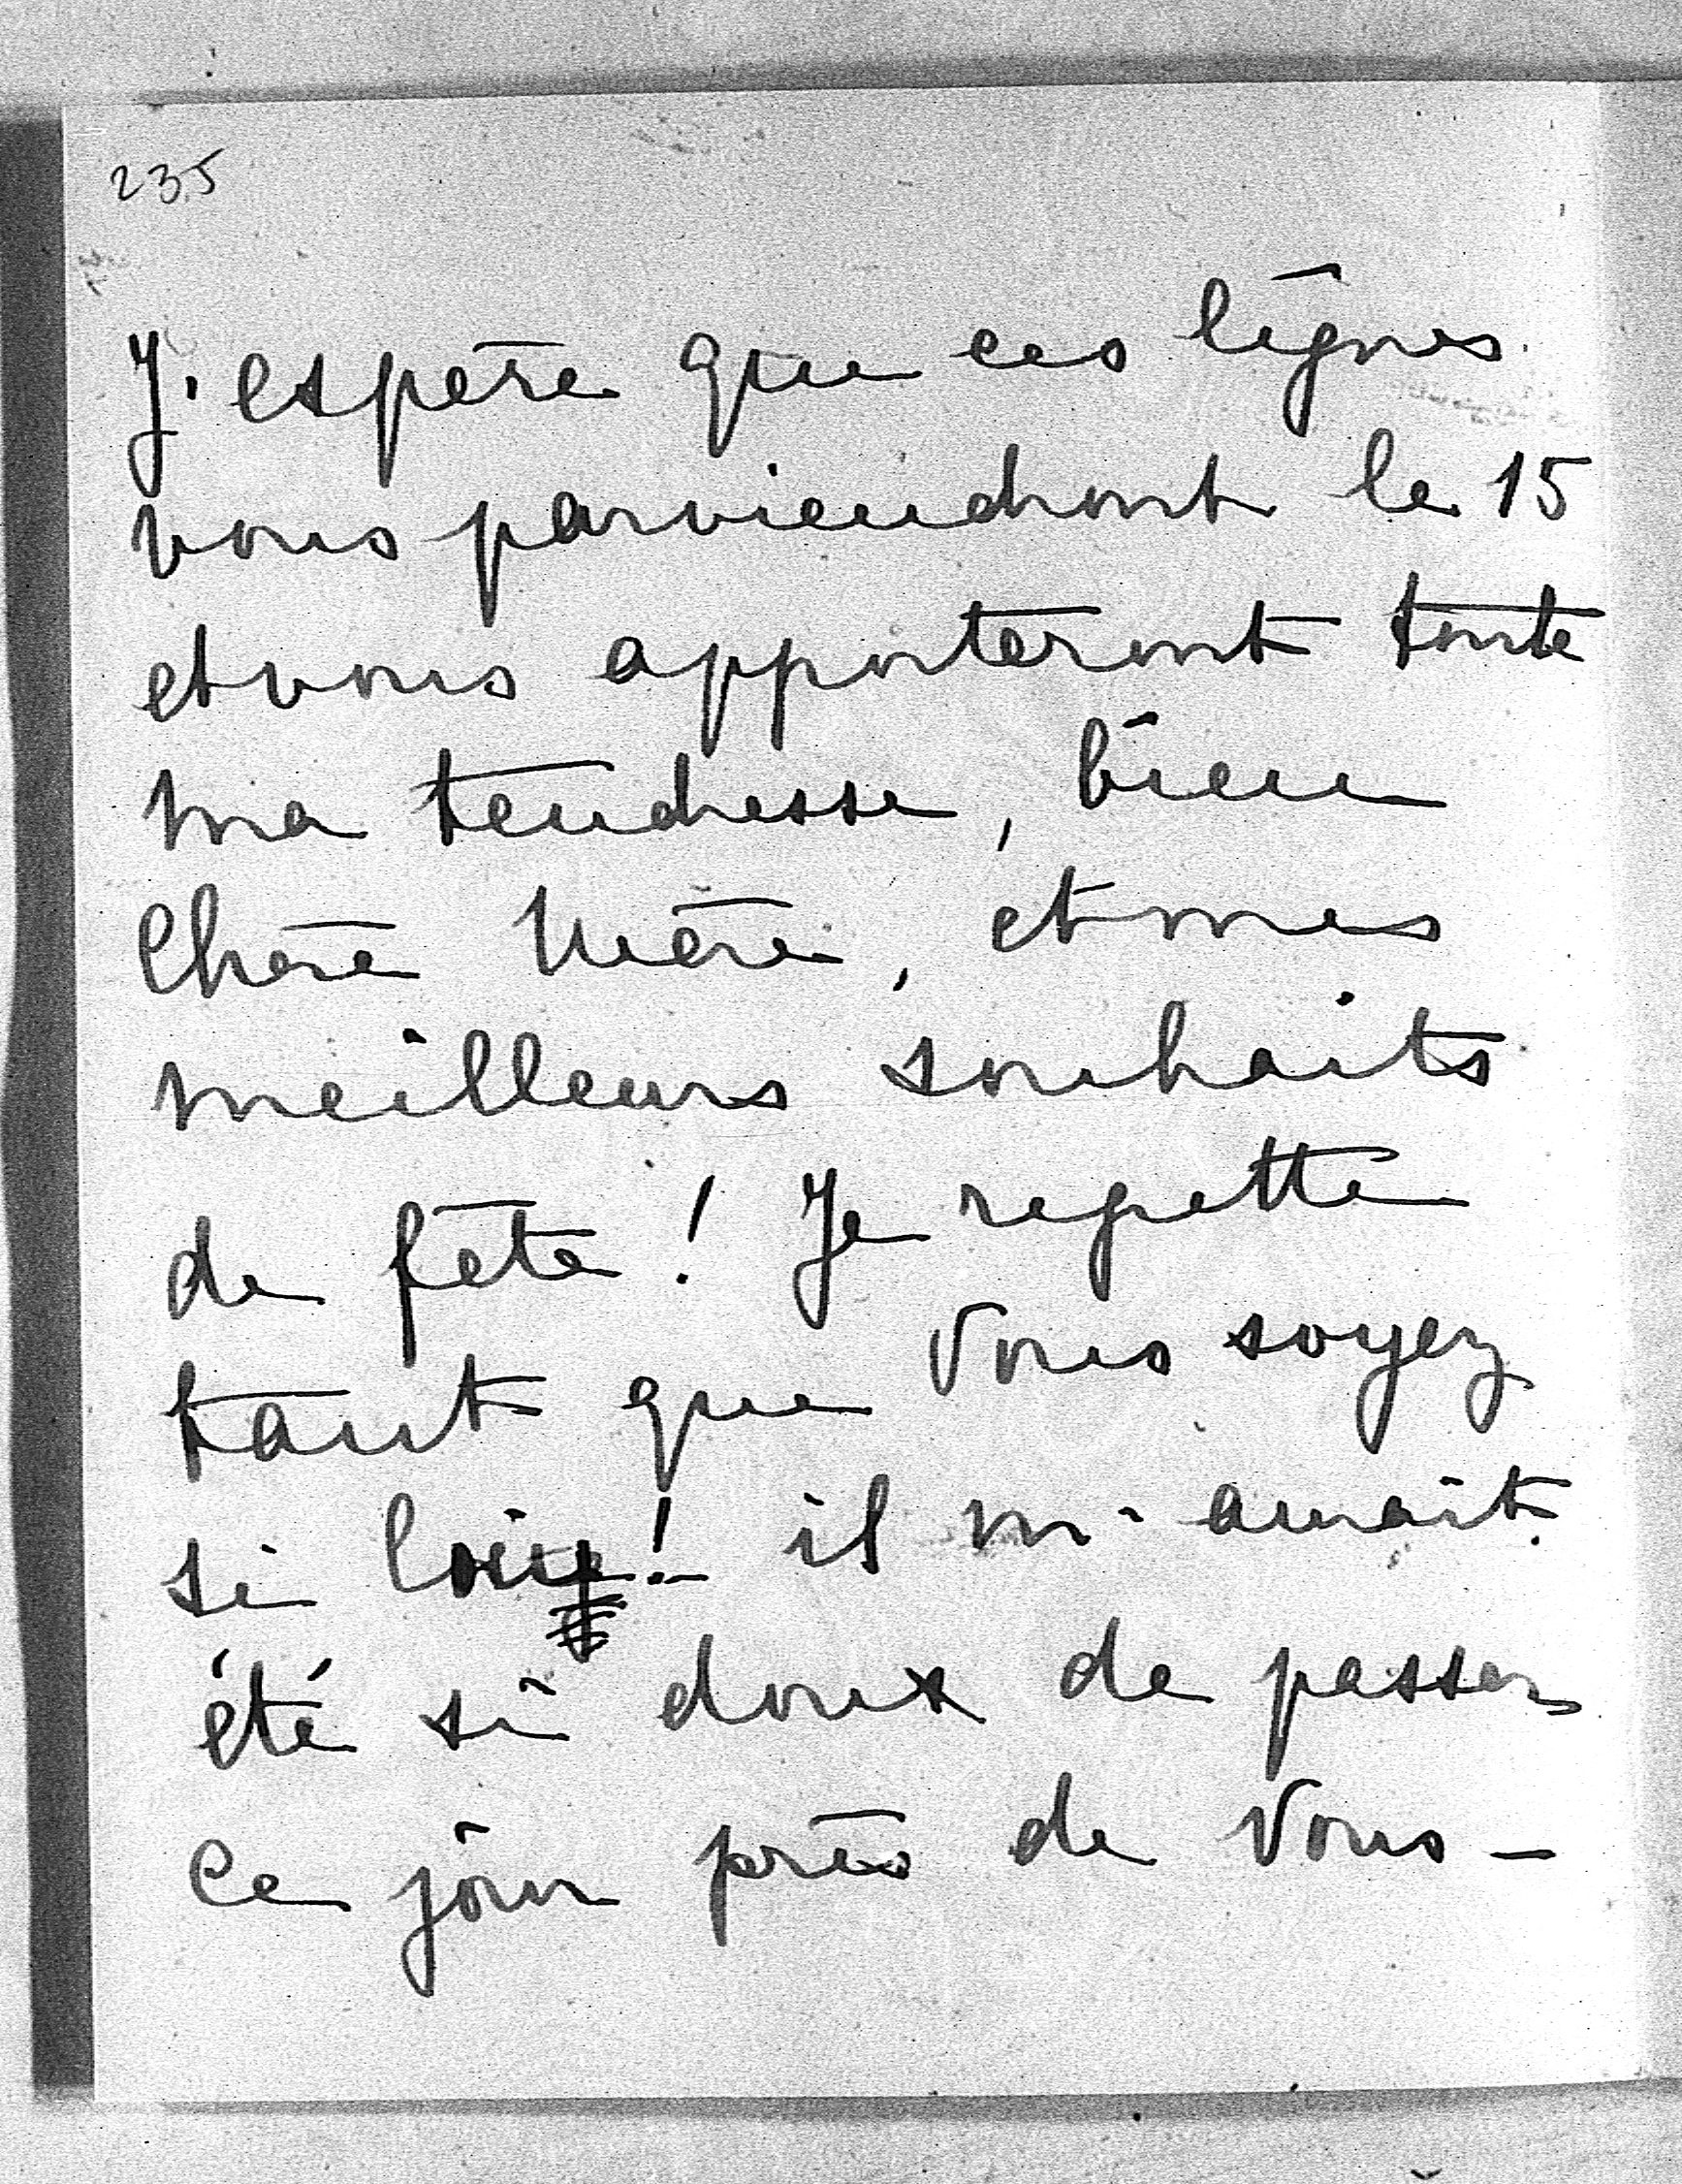 235
J'espère que ces lignes
vous parviendront le 15
et vous apporteront toute
ma tendresse, bien
Chère Mère, et mes
meilleurs souhaits
de fête ! Je regrette
tant que vous soyez
si loin ! il m'aurait
été si doux de passer
ce jour près de vous -